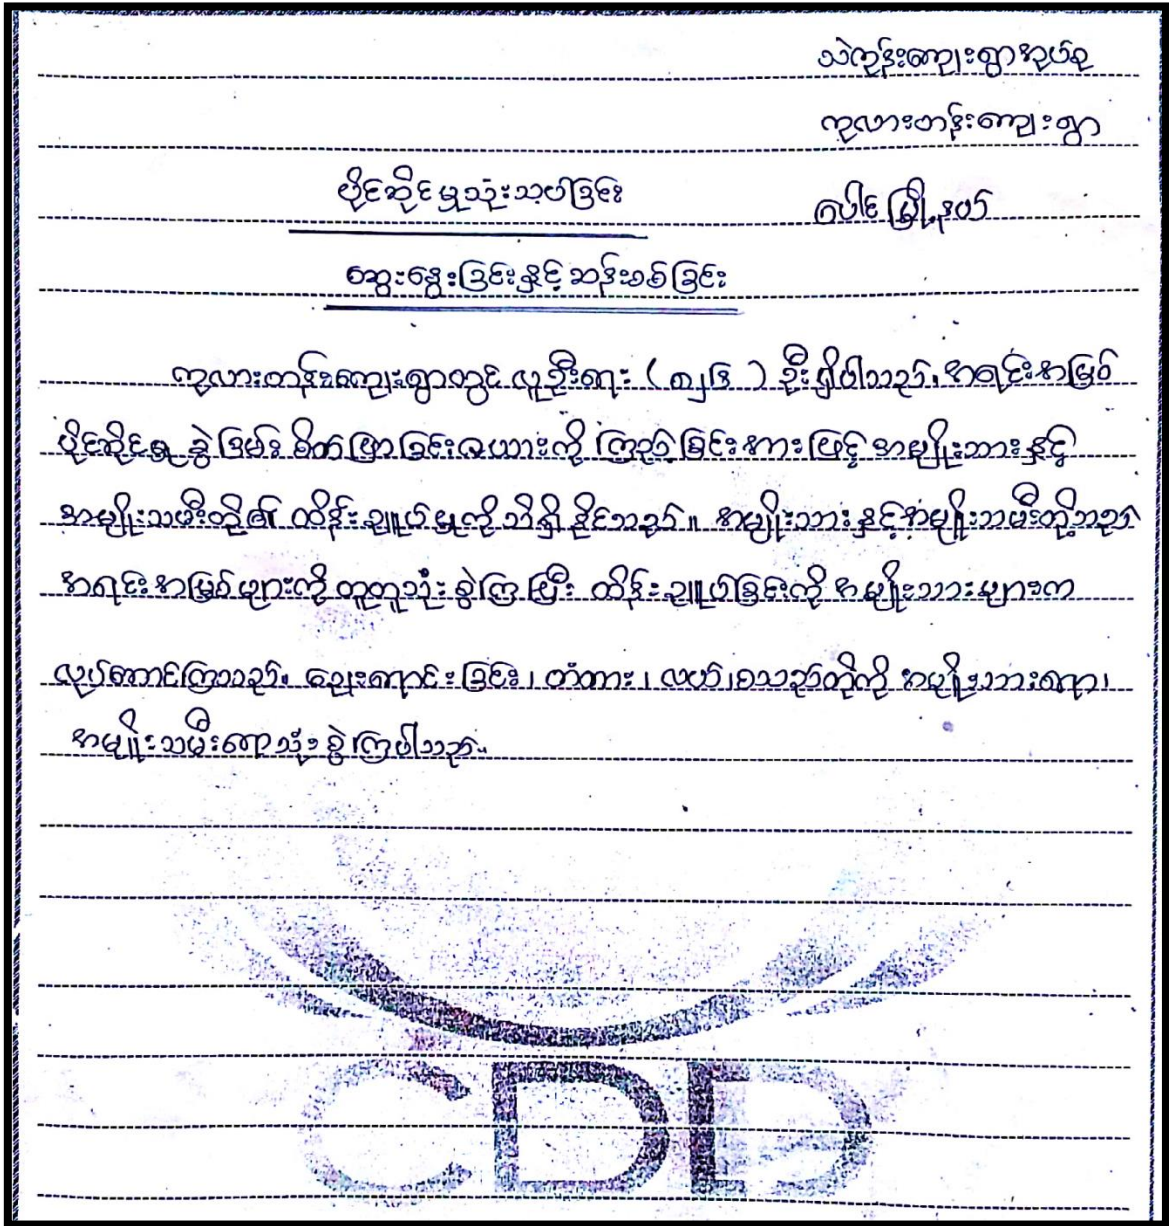 သဲကုန်းကျေးရွာအုပ်စု
ကုလားတန်းကျေးရွာ
ပိုင်ဆိုင်မှုသုံးသပ်ခြင်း
ပေါင်မြို့နယ်
ဆွေးနွေးခြင်းနှင့် ဆန်းစစ်ခြင်း
ကုလားတန်းကျေးရွာတွင် လူဦးရေး ( ၈၂၆ ) ဦးရှိပါသည်၊ အရင်းအမြစ်
ပိုင်ဆိုင်မှု ခွဲခြမ်း စိတ်ဖြာခြင်းဇယားကို ကြည့်ခြင်းအားဖြင့် အမျိုးသားနှင့်
အမျိုးသမီးတို့၏ ထိန်းချူပ်မှုကို သိရှိနိုင်သည်။ အမျိုးသားနှင့်အမျိုးသမီးတို့သည်
အရင်းအမြစ်များကို တူတူသုံးစွဲကြပြီး ထိန်းချူပ်ခြင်းကို အမျိုးသားများက
လုပ်ဆောင်ကြသည်၊ ဈေးရောင်းခြင်း၊ တံတား၊ လယ်၊စသည်တို့ကို အမျိုးသားရော၊
အမျိုးသမီးရောသုံးစွဲကြပါသည်။
CDD